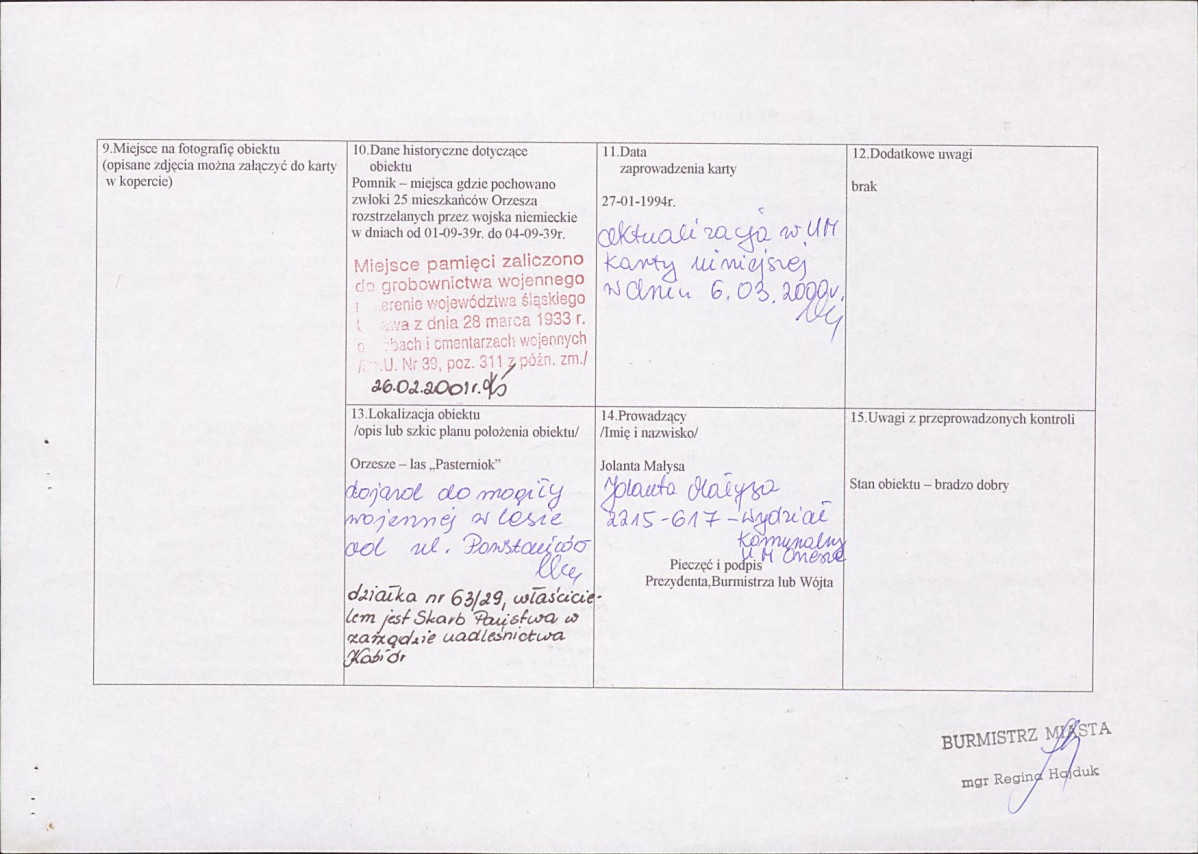 9.Miejsce na fotografię obiektu
(opisane zdjęcia można załączyć do karty
w kopercie)
10.Dane historyczne dotyczące
obiektu
Pomnik – miejsca gdzie pochowano
zwłoki 25 mieszkańców Orzesza
rozstrzelanych przez wojska niemieckie
w dniach od 01-09-39r. do 04-09-39r.
Miejsce pamięci zaliczono
do grobownictwa wojennego
erenie województwa śląskiego
wa z dnia 28 marca 1933 r.
o bach i cmentarzach wojennych
U. Nr 39, poz. 311 z późn. zm./
26.02.2001r.
11.Data
zaprowadzenia karty
27-01-1994r.
aktualizacja w UM
karty niniejszej
w dniu 6.03.2000r.
12.Dodatkowe uwagi
brak
13.Lokalizacja obiektu
/opis lub szkic planu położenia obiektu/
Orzesze – las „Pasterniok”
dojazd do mogiły
wojennej w lesie
od ul. Powstańców
działka nr 63/29, właścicie-
lem jest Skarb Państwa w
zarządzie nadleśnictwa
Kobiór
14.Prowadzący
/Imię i nazwisko/
Jolanta Małysa
Jolanta Małysa
2215-617 – Wydział
Komunalny
UM Orzesze
Pieczęć i podpis
Prezydenta,Burmistrza lub Wójta
15.Uwagi z przeprowadzonych kontroli
Stan obiektu – bradzo dobry
BURMISTRZ MIASTA
mgr Regina Hajduk